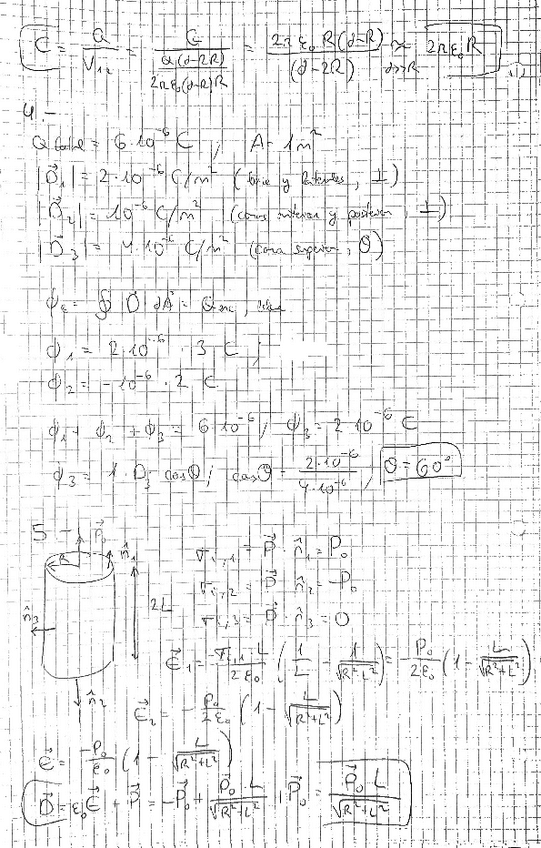 C = Q / V₁₂ = Q / (Q(d-2R) / 2πε₀(d-R)R) = 2πε₀R(d-R) / (d-2R) ≈ d>>R 2πε₀R
4-
Q = 6·10⁻⁶ C ; A = 1 m²
|D⃗₁| = 2·10⁻⁶ C/m² (base y laterales, ⊥)
|D⃗₂| = 10⁻⁶ C/m² (caras anterior y posterior, ⊥)
|D⃗₃| = 4·10⁻⁶ C/m² (cara superior, θ)
ϕ = ∮ D⃗ dA⃗ = Qenc,
ϕ₁ = 2·10⁻⁶ · 3 C ;
ϕ₂ = -10⁻⁶ · 2 C
ϕ₁ + ϕ₂ + ϕ₃ = 6·10⁻⁶ ; ϕ₃ = 2·10⁻⁶ C
ϕ₃ = 1·D₃·cosθ ; cosθ = 2·10⁻⁶ / 4·10⁻⁶ , θ = 60°
5 -
P⃗
R
n̂₁
n̂₃
2L
n̂₂
σᵢ,₁ = P⃗ · n̂₁ = P₀
σᵢ,₂ = P⃗ · n̂₂ = -P₀
σᵢ,₃ = P⃗ · n̂₃ = 0
ε⃗₁ = -σᵢ,₁·L / 2ε₀ (1/L - 1/√(R²+L²)) = -P₀/2ε₀ (1 - L/√(R²+L²))
ε⃗₂ = -P₀/2ε₀ (1 - L/√(R²+L²))
ε⃗ = -P₀/ε₀ (1 - L/√(R²+L²))
D⃗ = ε₀ε⃗ + P⃗ = -P⃗₀ + P⃗₀ L/√(R²+L²) + P⃗₀ = P⃗₀ L/√(R²+L²)